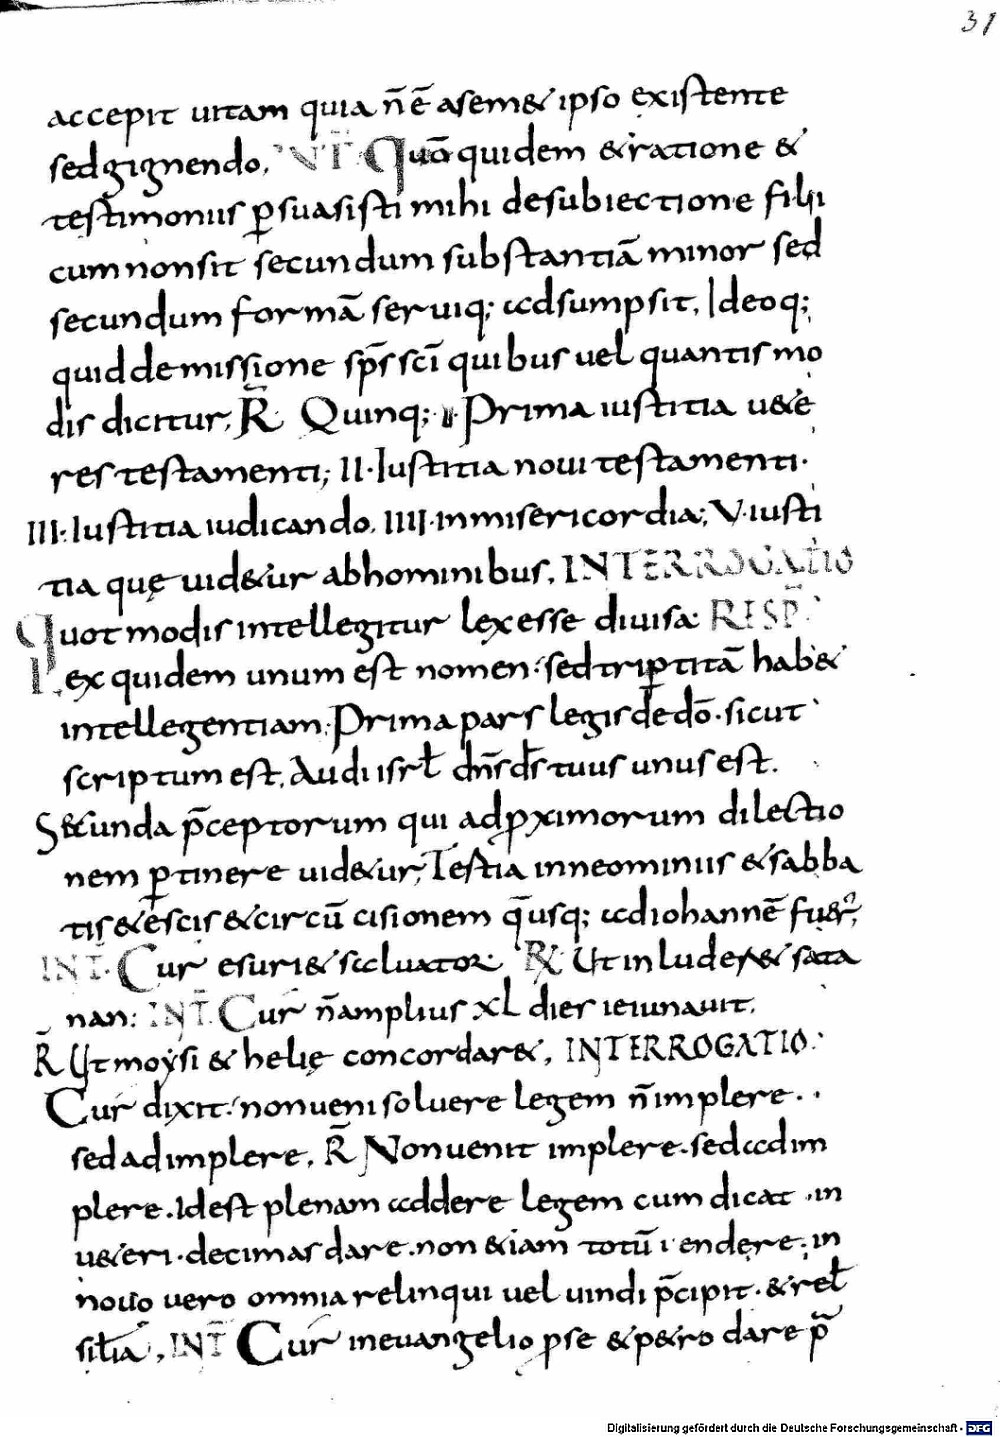 31
accepit uitam quia n̄ ē a semet ipso existente
sed gignendo, INT̄ Quō quidem & ratione &
testimoniis ꝑsuasisti mihi de subiectione filii
cum non sit secundum substantiā minor sed
secundum formā seruiq; adsumpsit, Ideoq;
quid de missione sp̄s sc̄i quibus uel quantis mo
dis dicitur, R̄ Quinq; I. Prima iustitia u&e
res testamenti; II. Iustitia noui testamenti.
III. Iustitia iudicando. IIII. in misericordia; V. iusti
tia quę uid&ur ab hominibus, INTERROGATIO
Quot modis intellegitur lex esse diuisa: RESP̄
Lex quidem unum est nomen: sed triꝑtitā hab&
intellegentiam; Prima pars legis de dō. sicut
scriptum est, Audi isrƚ dn̄s ds̄ tuus unus est.
Secunda p̄ceptorum qui ad ꝓximorum dilectio
nem ꝑtinere uid&ur, Testia in neominiis & sabba
tis & escis & circū cisionem q̄ usq; ad iohannē fuer̄,
INT̄. Cur esuri& saluator, R̄ Ut inluder& sata
nan: INT̄. Cur n̄ amplius XL dies ieiunauit.
R̄ Ut moysi & helię concordar&, INTERROGATIO:
Cur dixit: non ueni soluere legem n̄ implere..
sed adimplere, R̄ Non uenit implere. sed adim
plere. Idest plenam addere legem cum dicat in
u&eri. decimas dare. non &iam totū uendere; in
nouo uero omnia relinqui uel uindi p̄cipit. & reƚ
siƚia, INT̄ Cur in euangelio ꝓ se & p&ro dare p̄
Digitalisierung gefördert durch die Deutsche Forschungsgemeinschaft - DFG